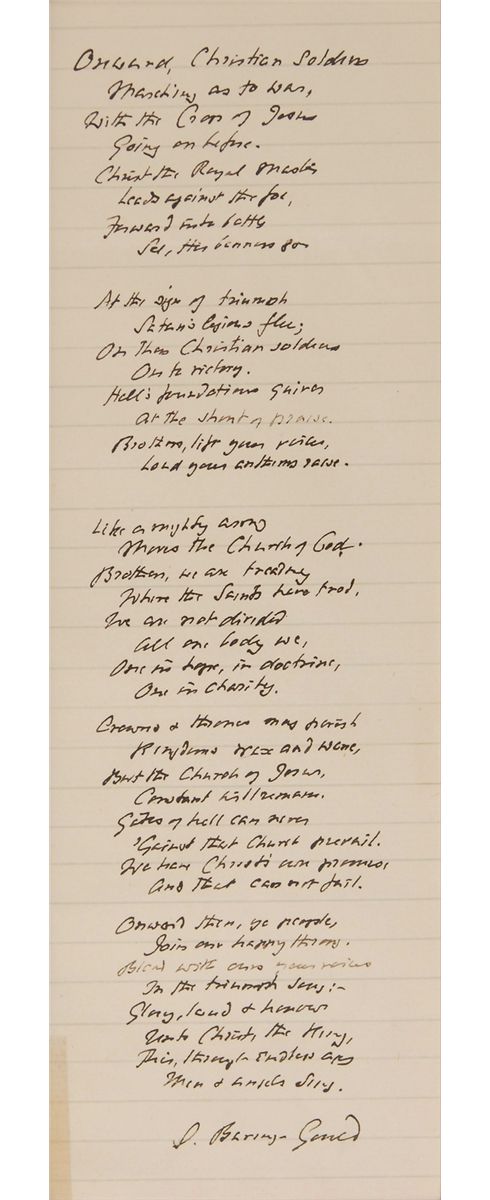 Onward, Christian Soldiers
Marching as to war,
With the Cross of Jesus
Going on before.
Christ the Royal Master
Leads against the foe,
Forward into battle
See, His banners go
At the sign of triumph
Satan's legions flee;
On then Christian soldiers
On to victory.
Hell's foundations quiver
At the shout of praise.
Brothers, lift your voices,
Loud your anthems raise.
Like a mighty army
Moves the Church of God.
Brothers, we are treading
Where the Saints have trod,
We are not divided
All one body we,
One in hope, in doctrine,
One in Charity.
Crowns & thrones may perish
Kingdoms wax and wane,
But the Church of Jesus,
Constant will remain.
Gates of hell can never
'Gainst that Church prevail.
We have Christ's own promise,
And that can not fail.
Onward then, ye people,
Join our happy throng.
Blend with ours your voices
In the triumph song:-
Glory, laud & honour
Unto Christ, the King,
This, through endless ages
Men & angels sing.
S. Baring-Gould